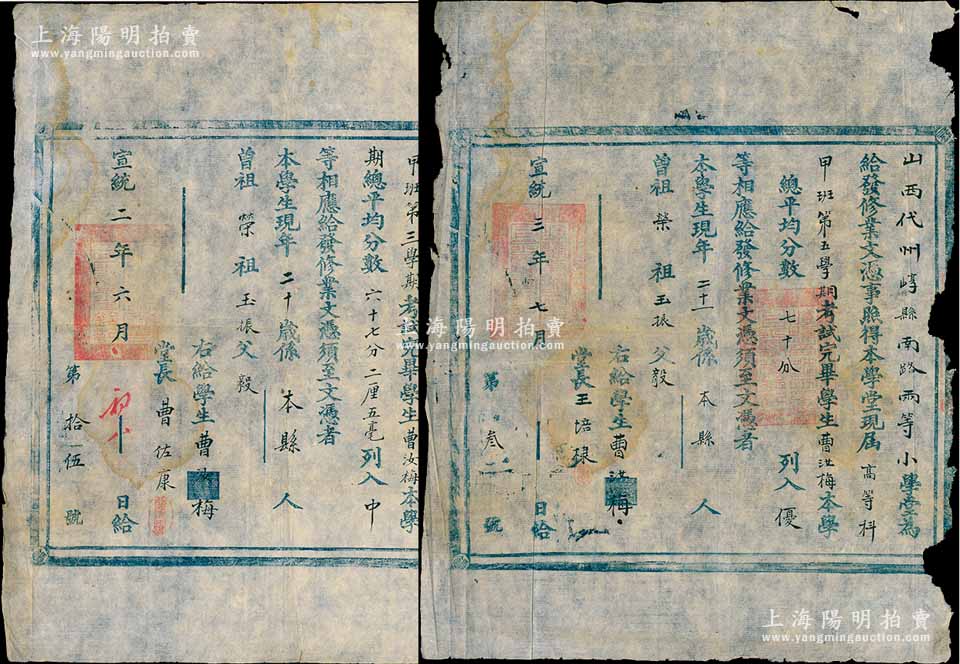 上海陽明拍賣
www.yangmingauction.com
山西代州崞縣南路兩等小學堂為
給發修業文憑事照得本學堂現届高等科
甲班第五學期考試完畢學生曹汝梅本學
總平均分數七十分列入優
等相應給發修業文憑須至文憑者
本學生現年二十一歲係本縣人
曾祖榮祖玉振父毅
右給學生曹汝梅
堂長王
宣統三年七月日給
第叁號
甲班第三學期考試完畢學生曹汝梅本學
期總平均分數六十七分二厘五毫列入中
等相應給發修業文憑須至文憑者
本學生現年二十歲係本縣人
曾祖榮祖玉振父毅
右給學生曹汝梅
堂長曹佐康
宣統二年六月日給
第拾伍號
上海陽明拍賣
www.yangmingauction.com
上海陽明拍賣
www.yangmingauction.com